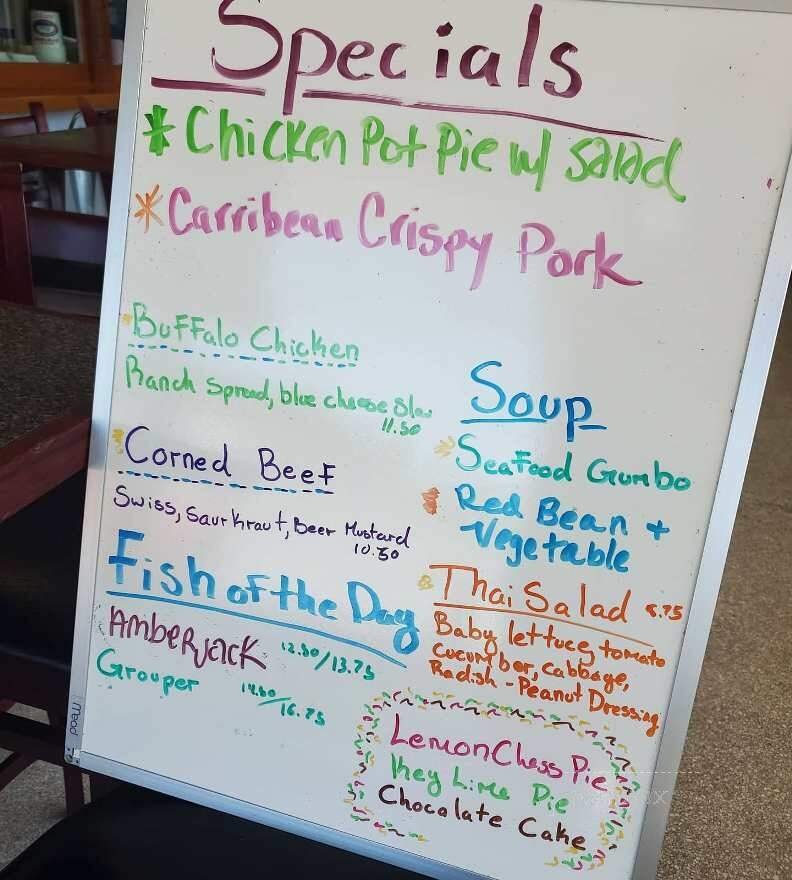 Specials
* Chicken Pot Pie w/ Salad
* Carribean Crispy Pork
Buffalo Chicken
Ranch Spread, blue cheese Slaw
11.50
Corned Beef
Swiss, Saurkraut, Beer Mustard
10.50
Fish of the Day
Amberjack 12.50/13.75
Grouper 14.50/16.75
Soup
Seafood Gumbo
Red Bean +
Vegetable
Thai Salad 8.75
Baby lettuce, tomato
cucumber, cabbage,
Radish - Peanut Dressing
Lemon Chess Pie
Key Lime Pie
Chocolate Cake